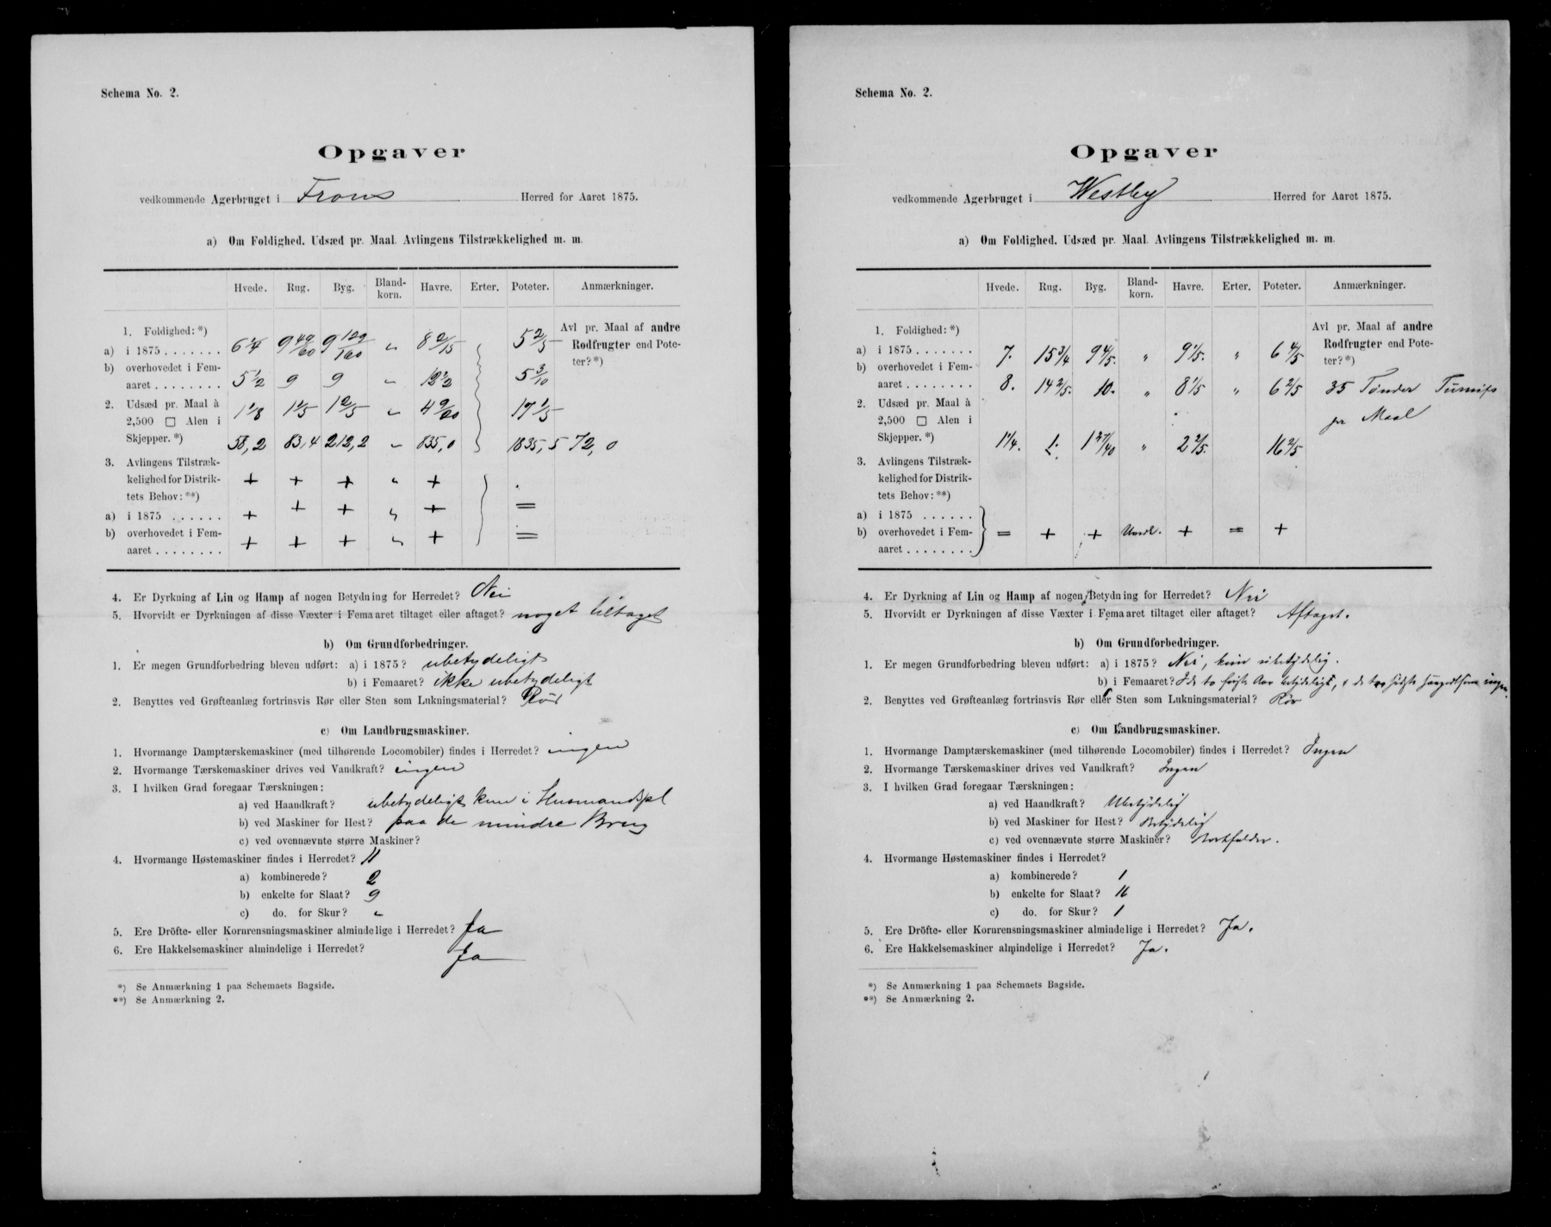 Schema No. 2.
Opgaver
vedkommende Agerbruget i Frons Herred for Aaret 1875.
a) Om Foldighed, Udsæd pr. Maal, Avlingens Tilstrækkelighed m. m.
Hvede. Rug. Byg. Bland-korn. Havre. Erter. Poteter. Anmærkninger.
1. Foldighed: *) Avl pr. Maal af andre
a) i 1875 . . . . . . . 9 49/60 9 129/160 " 8 2/15 5 2/5 Rodfrugter end Pote-
b) overhovedet i Fem- ter? *)
aaret . . . . . . . . 5 1/2 9 9 " 5 3/10
2. Udsæd pr. Maal à 1 1/8 1 1/5 1 2/5 " 4 9/20 17 1/5
2,500 □ Alen i
Skjepper. *) 58,2 83,4 212,2 " 835,0 1835,5 72,0
3. Avlingens Tilstræk-
kelighed for Distrik- + + + " + .
tets Behov: **)
a) i 1875 . . . . . . + + + " + =
b) overhovedet i Fem-
aaret . . . . . . . . + + + " + =
4. Er Dyrkning af Lin og Hamp af nogen Betydning for Herredet? Nei
5. Hvorvidt er Dyrkningen af disse Væxter i Femaaret tiltaget eller aftaget? noget tiltaget
b) Om Grundforbedringer.
1. Er megen Grundforbedring bleven udført: a) i 1875? ubetydeligt
b) i Femaaret? ikke ubetydeligt
2. Benyttes ved Grøfteanlæg fortrinsvis Rør eller Sten som Lukningsmaterial? Rör
c) Om Landbrugsmaskiner.
1. Hvormange Damptærskemaskiner (med tilhørende Locomobiler) findes i Herredet? ingen
2. Hvormange Tærskemaskiner drives ved Vandkraft? ingen
3. I hvilken Grad foregaar Tærskningen:
a) ved Haandkraft? ubetydeligt kun i Husmandspl
b) ved Maskiner for Hest? paa de mindre Brug
c) ved ovennævnte større Maskiner?
4. Hvormange Høstemaskiner findes i Herredet? 11
a) kombinerede? 2
b) enkelte for Slaat? 9
c) do. for Skur? "
5. Ere Dröfte- eller Kornrensningsmaskiner almindelige i Herredet? Ja
6. Ere Hakkelsemaskiner almindelige i Herredet? Ja
*) Se Anmærkning 1 paa Schemaets Bagside.
**) Se Anmærkning 2.
Schema No. 2.
Opgaver
vedkommende Agerbruget i Westby Herred for Aaret 1875.
a) Om Foldighed, Udsæd pr. Maal, Avlingens Tilstrækkelighed m. m.
Hvede. Rug. Byg. Bland-korn. Havre. Erter. Poteter. Anmærkninger.
1. Foldighed: *) Avl pr. Maal af andre
a) i 1875 . . . . . . . 7. 15 3/4 9 4/5. " 9 1/5. " 6 4/5 Rodfrugter end Pote-
b) overhovedet i Fem- ter? *)
aaret . . . . . . . . 8. 14 2/5. 10. " 8 1/5 " 6 2/5 35 Tønder Turnips
2. Udsæd pr. Maal à
2,500 □ Alen i pr Maal
Skjepper. *) 1 1/4. 1. 1 27/40 " 2 2/5. 16 2/5
3. Avlingens Tilstræk-
kelighed for Distrik-
tets Behov: **)
a) i 1875 . . . . . .
b) overhovedet i Fem- = + + + = +
aaret . . . . . . . .
4. Er Dyrkning af Lin og Hamp af nogen Betydning for Herredet? Nei
5. Hvorvidt er Dyrkningen af disse Væxter i Femaaret tiltaget eller aftaget? Aftaget.
b) Om Grundforbedringer.
1. Er megen Grundforbedring bleven udført: a) i 1875? Nei, kun ubetydelig.
b) i Femaaret? I de to første Aar betydeligt, i de tre sidste ingen
2. Benyttes ved Grøfteanlæg fortrinsvis Rør eller Sten som Lukningsmaterial? Rör
c) Om Landbrugsmaskiner.
1. Hvormange Damptærskemaskiner (med tilhørende Locomobiler) findes i Herredet? Ingen
2. Hvormange Tærskemaskiner drives ved Vandkraft? Ingen
3. I hvilken Grad foregaar Tærskningen:
a) ved Haandkraft? Ubetydelig
b) ved Maskiner for Hest? Betydelig
c) ved ovennævnte større Maskiner? Bortfalder.
4. Hvormange Høstemaskiner findes i Herredet?
a) kombinerede? 1
b) enkelte for Slaat? 16
c) do. for Skur? 1
5. Ere Dröfte- eller Kornrensningsmaskiner almindelige i Herredet? Ja.
6. Ere Hakkelsemaskiner almindelige i Herredet? Ja.
*) Se Anmærkning 1 paa Schemaets Bagside.
**) Se Anmærkning 2.